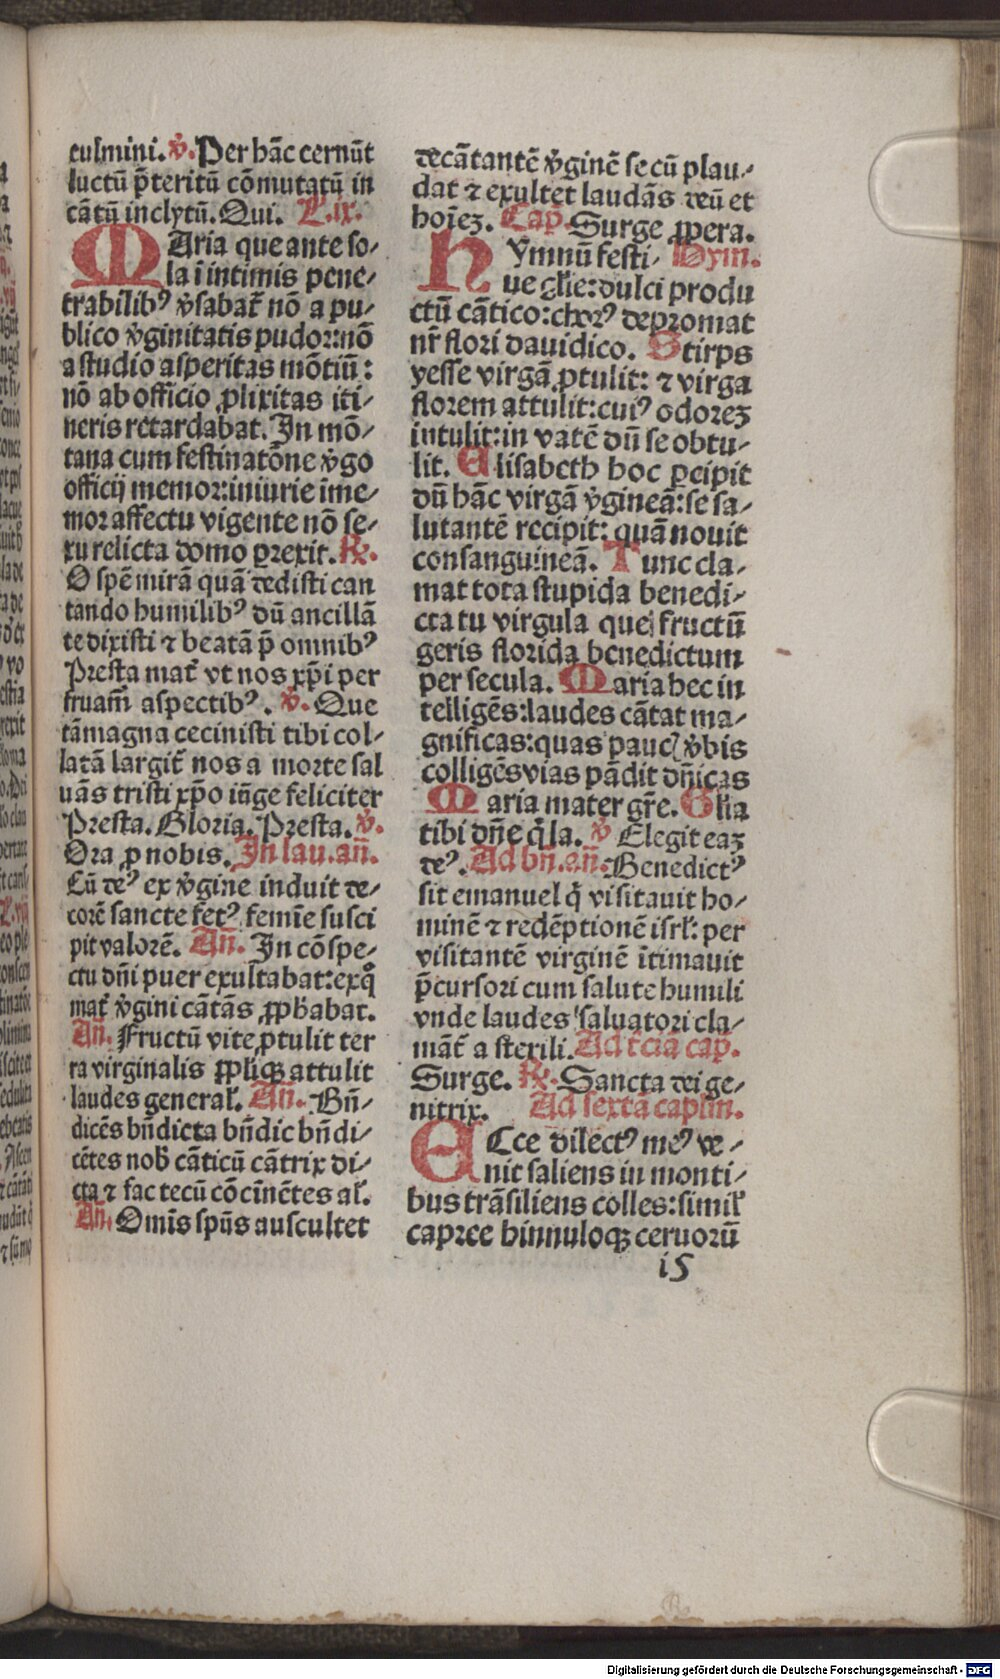 culmini. v̄. Per hāc cernūt
luctū p̄teritū cōmutatū in
cātū inclytū. Qui. L.ix.
MAria que ante so⸗
la ī intimis pene⸗
trabilibꝰ v̓sabat̄ nō a pu⸗
blico v̓ginitatis pudor: nō
a studio asperitas mōtiū:
nō ab officio ꝓlixitas iti⸗
neris retardabat. In mō⸗
tana cum festinatōne v̓go
officij memor: iniurie īme⸗
mor affectu vigente nō se⸗
xu relicta domo ꝑrexit. R̄.
O spē mirā quā dedisti can
tando humilibꝰ dū ancillā
te dixisti ⁊ beatā p̄ omnibꝰ
Presta mat̄ vt nos xp̄i per
fruam̄ aspectibꝰ. v̄. Que
tā magna cecinisti tibi col⸗
latā largit̄ nos a morte sal
uās tristi xp̄o iūge feliciter
Presta. Gloria. Presta. v̄.
Ora ꝓ nobis. In lau. an̄.
Cū deꝰ ex v̓gine induit de⸗
corē sancte fetꝰ femīe susci
pit valorē. An̄. In cōspe⸗
ctu dn̄i puer exultabat: ex q̊
mat̄ v̓gini cātās ꝓphabat.
An̄. Fructū vite ꝓtulit ter
ra virginalis ꝓpliqꝫ attulit
laudes general̄. An̄. Bn̄⸗
dicēs bn̄dicta bn̄dic bn̄di⸗
cētes nob̄ cāticū cātrix di⸗
cta ⁊ fac tecū cōcinētes al̄.
An̄. Om̄is sp̄us auscultet
decātantē v̓ginē se cū plau⸗
dat ⁊ exultet laudās deū et
hoīeꝫ. Cap̄. Surge ꝓpera.
HYmnū festi⸗ Hym.
ue gl̄ie: dulci produ
ctū cātico: chorꝰ depromat
nr̄ flori dauidico. Stirps
yesse virgā ꝓtulit: ⁊ virga
florem attulit: cuiꝰ odoreꝫ
intulit: in vatē dū se obtu⸗
lit. Elisabeth hoc ꝑcipit
dū hāc virgā v̓gineā: se sa⸗
lutantē recipit: quā nouit
consanguineā. Tunc cla⸗
mat tota stupida benedi⸗
cta tu virgula que fructū
geris florida benedictum
per secula. Maria hec in
telligēs: laudes cātat ma⸗
gnificas: quas paucꝭ v̓bis
colligēs vias pādit dn̄icas
Maria mater gr̄e. Gl̄ia
tibi dn̄e q̄ la. v̄ Elegit eaꝫ
deꝰ. Ad bn̄. an̄. Benedictꝰ
sit emanuel q̇ visitauit ho⸗
minē ⁊ redēptionē isrl̄: per
visitantē virginē ītimauit
p̄cursori cum salute humili
vnde laudes saluatori cla⸗
māt̄ a sterili. Ad t̄ciā cap̄.
Surge. R̄. Sancta dei ge⸗
nitrix. Ad sextā capl̄m.
ECce dilectꝰ meꝰ ve⸗
nit saliens in monti⸗
bus trāsiliens colles: simil̄
capree hinnuloqꝫ ceruorū
i5
Digitalisierung gefördert durch die Deutsche Forschungsgemeinschaft - DFG